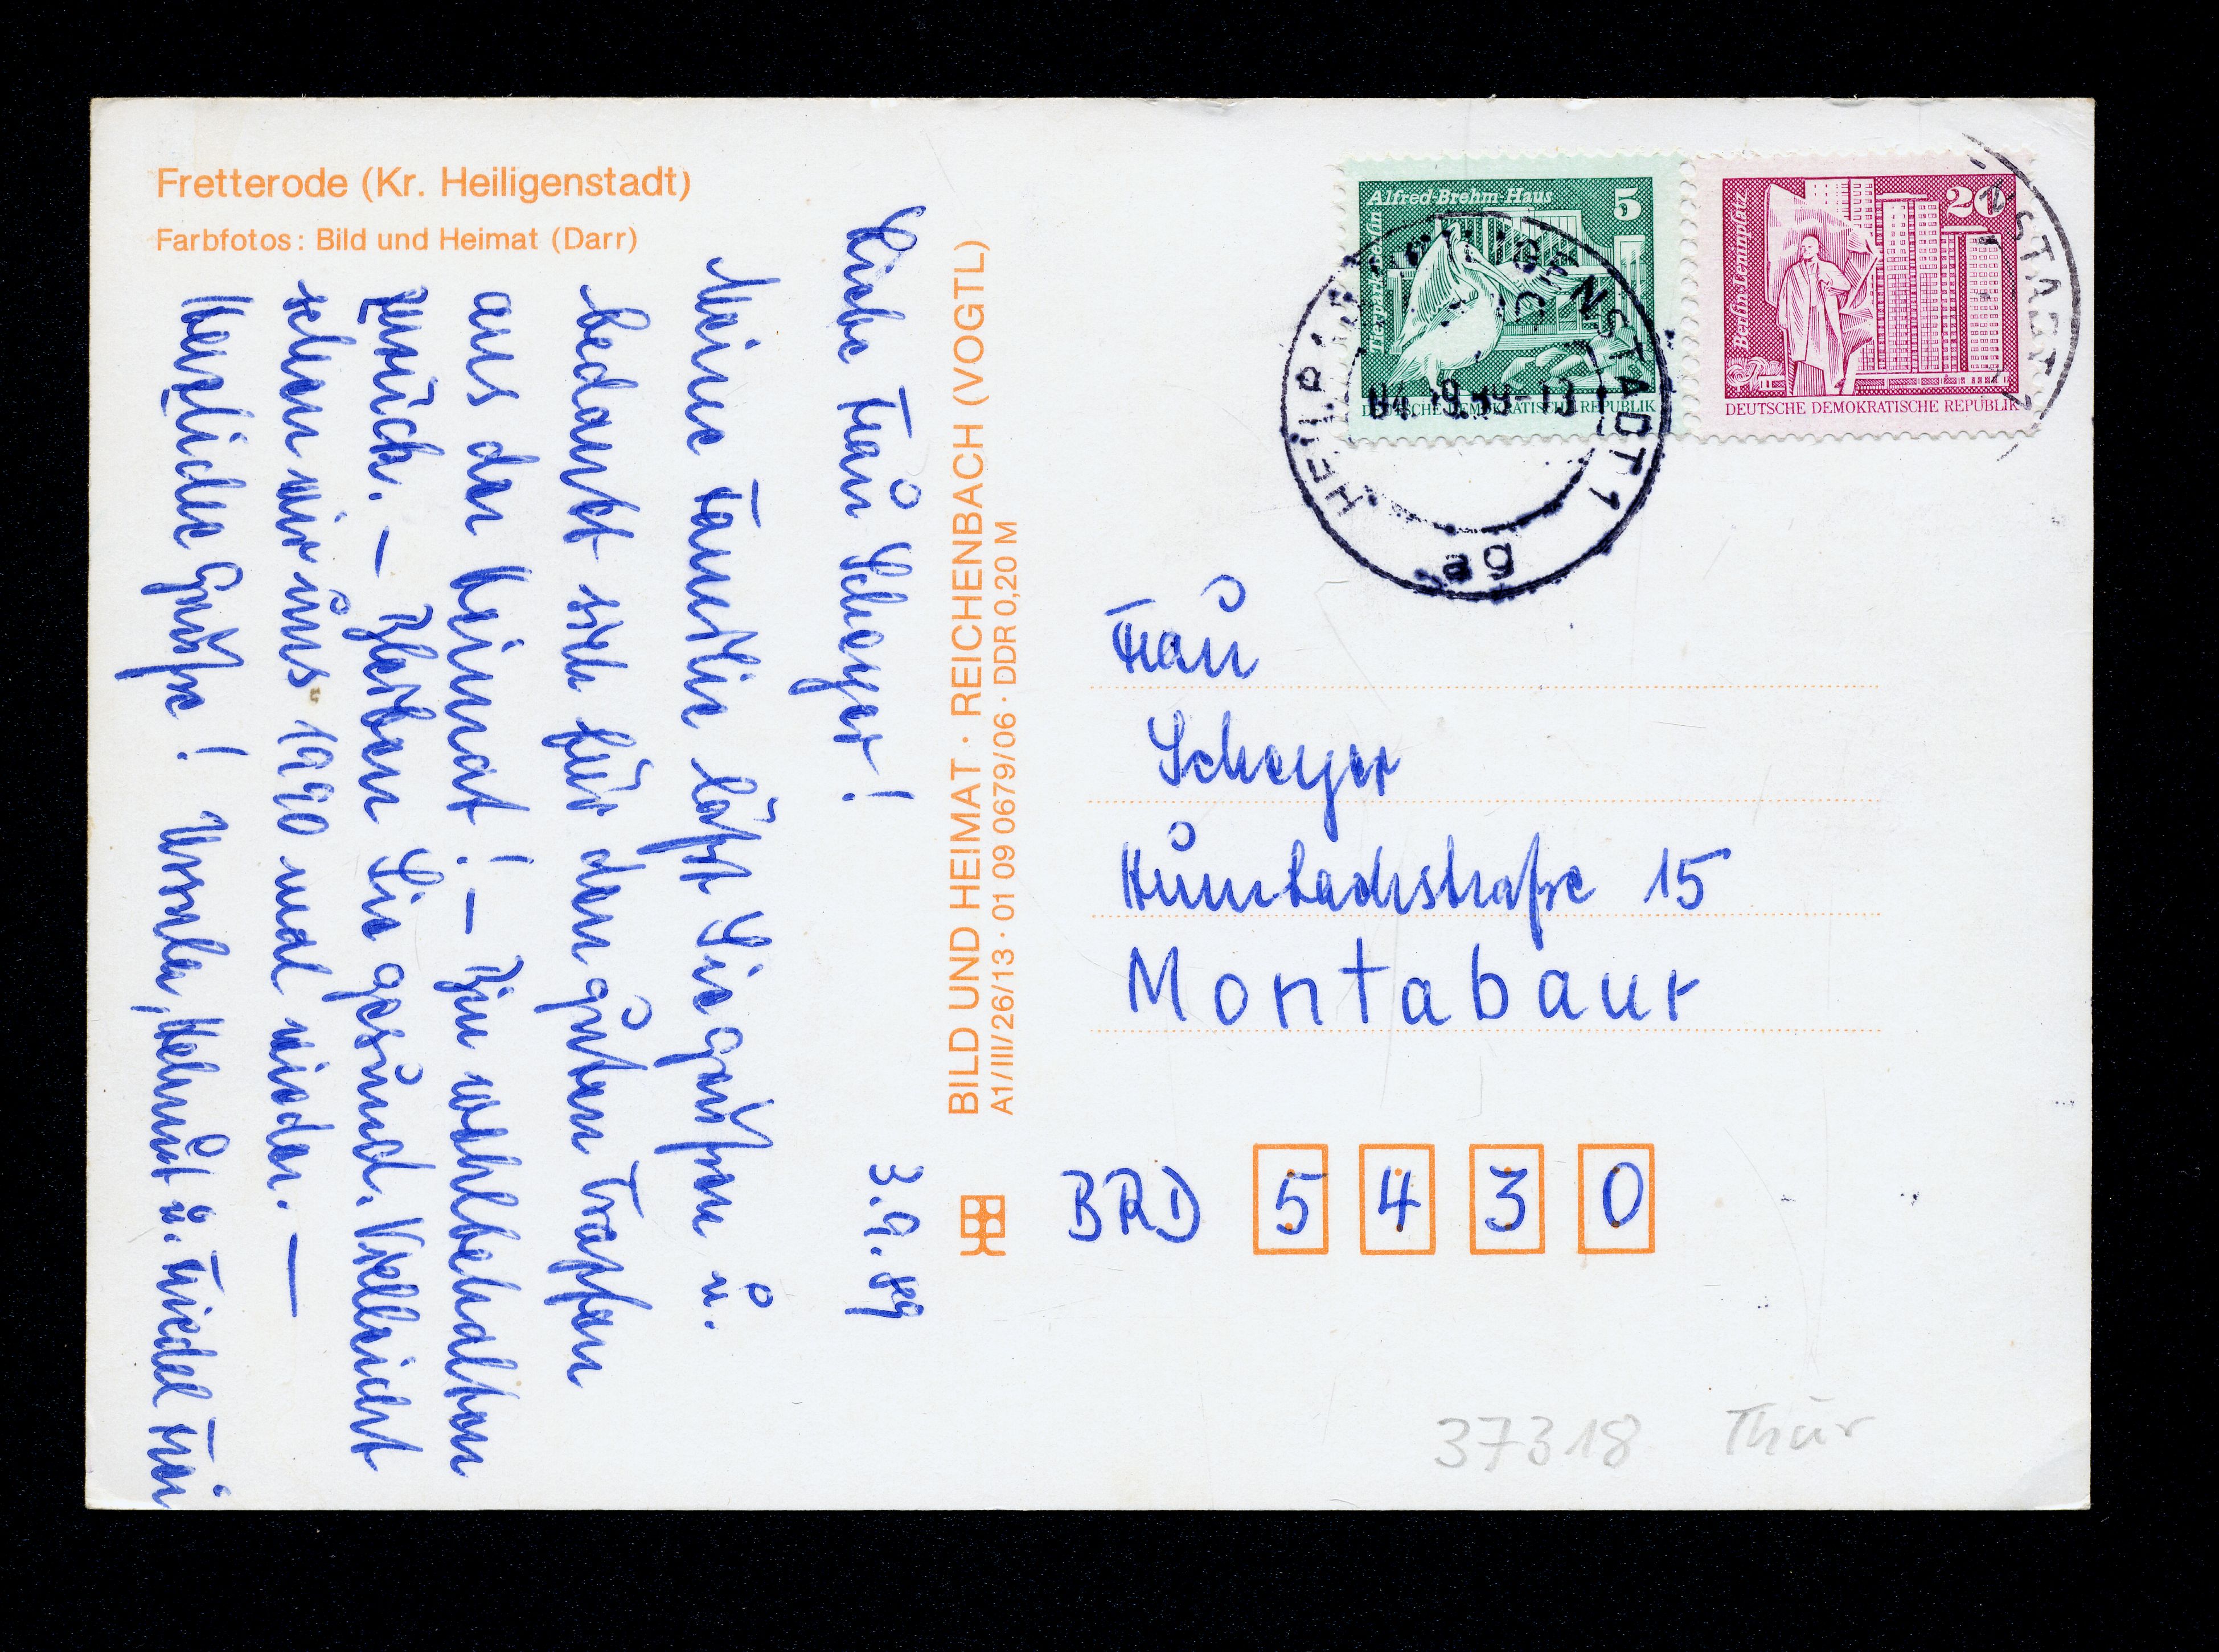 Fretterode (Kr. Heiligenstadt)
Farbfotos: Bild und Heimat (Darr)
Liebe Frau Scheyer!
3.9.89
Meine Familie läßt Sie grüßen u.
bedankt sich für den guten Tropfen
aus der Heimat! – Bin wohlbehalten
zurück. – Bleiben Sie gesund. Vielleicht
sehen wir uns 1990 mal wieder. –
Herzliche Grüße! Ursula, Helmut u. Friedel Frei
BILD UND HEIMAT · REICHENBACH (VOGTL)
A1/III/26/13 · 01 09 0679/06 · DDR 0,20 M
Alfred-Brehm-Haus
5
Tierpark Berlin
DEUTSCHE DEMOKRATISCHE REPUBLIK
20
Berlin-Leninplatz
DEUTSCHE DEMOKRATISCHE REPUBLIK
HEILIGENSTADT 1
Frau
Scheyer
Humbachstraße 15
Montabaur
BRD 5 4 3 0
37318 Thür